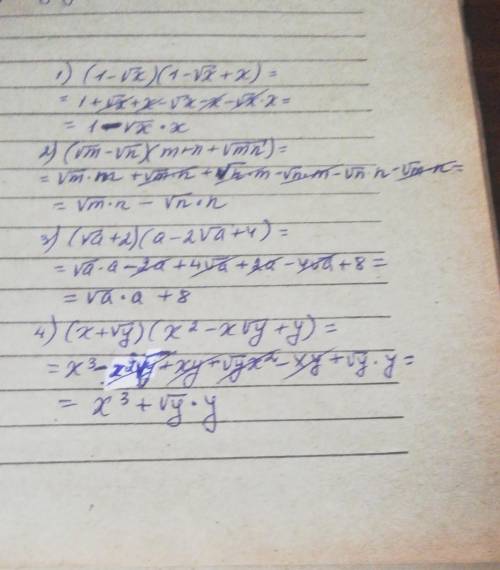 1) (1-√x)(1-√x+x)=
= 1+√x+x-√x-x-√x·x=
= 1-√x·x
2) (√m-√n)(m+n+√mn)=
= √m·m+√m·n+√n·m-√n·m-√n·n-√m·n=
= √m·n-√n·n
3) (√a+2)(a-2√a+4)=
= √a·a-2a+4√a+2a-4√a+8=
= √a·a+8
4) (x+√y)(x²-x√y+y)=
= x³-x²√y+xy+√yx²-xy+√y·y=
= x³+√y·y